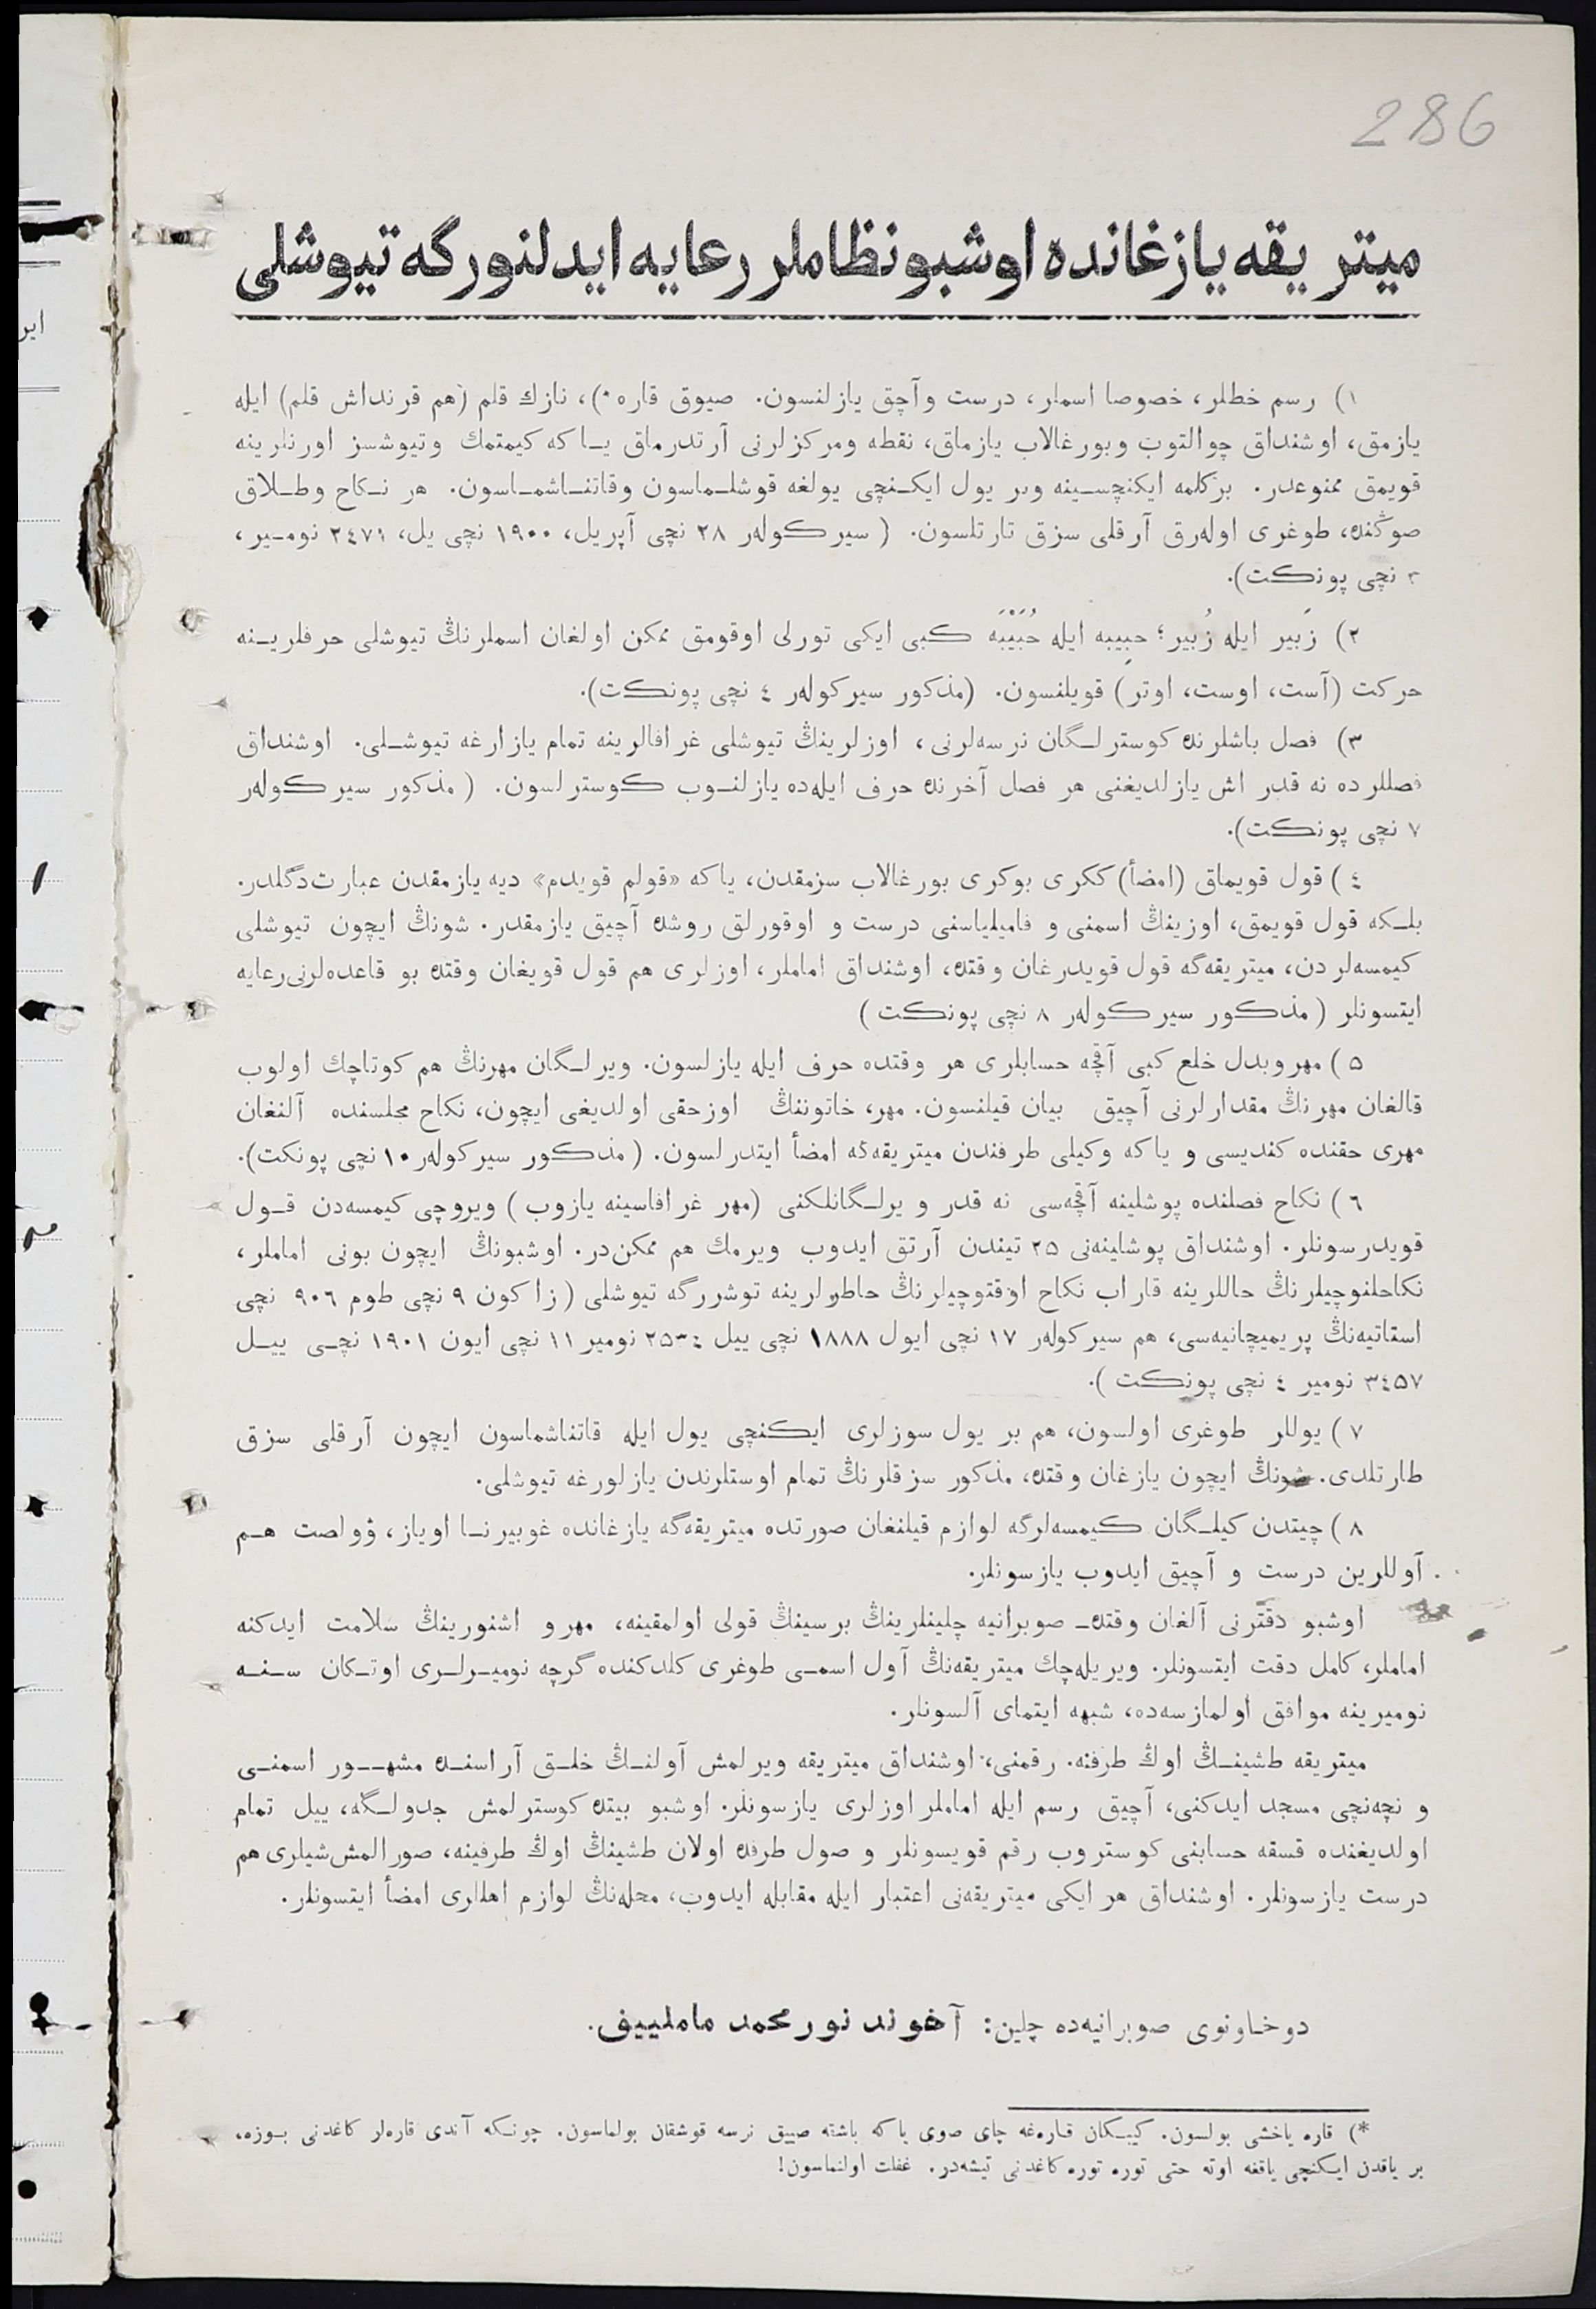 286
ميتريقه يازغانده اوشبو نظاملر رعايه ايدلنورگه تيوشلى
١) رسم خطلر، خصوصا اسملر، درست وآچق يازلنسون. صيوق قاره *)، نازك قلم (هم قرنداش قلم) ايله
يازمق، اوشنداق چوالتوب وبورغالاب يازماق، نقطه ومركزلرنى آرتدرماق يـاكه كيمتمك وتيوشسز اورنلرينه
قويمق ممنوعدر. بركلمه ايكنچسـينه وبر يول ايكـنچى يولغه قوشلـماسون وقاتنـاشمـاسون. هر نـكاح وطـلاق
صوڭنده، طوغرى اولەرق آرقلى سزق تارتلسون. (سيركولەر ٢٨ نچى آپريل، ١٩٠٠ نچى يل، ٢٤٧١ نومـير،
٣ نچى پونكت).
٢) زَبير ايله زُبير؛ حبِيبه ايله حُبَيْبَه كبى ايكى تورلى اوقومق ممكن اولغان اسملرنڭ تيوشلى حرفلريـنه
حركت (آست، اوست، اوتر) قويلنسون. (مذكور سيركولەر ٤ نچى پونكت).
٣) فصل باشلرنده كوسترلـگان نرسەلرنى، اوزلرينڭ تيوشلى غرافالرينه تمام يازارغه تيوشـلى. اوشنداق
فصللرده نه قدر اش يازلديغنى هر فصل آخرنده حرف ايلەده يازلنـوب كوسترلسون. (مذكور سيركولەر
٧ نچى پونكت).
٤) قول قويماق (امضأ) ككرى بوكرى بورغالاب سزمقدن، ياكه «قولم قويدم» ديه يازمقدن عبارت دگلدر.
بلـكه قول قويمق، اوزينڭ اسمنى و فاميلياسنى درست و اوقورلق روشده آچيق يازمقدر. شونڭ ايچون تيوشلى
كيمسەلردن، ميتريقەگه قول قويدرغان وقتده، اوشنداق اماملر، اوزلرى هم قول قويغان وقتده بو قاعدەلرنى رعايه
ايتسونلر (مذكور سيركولەر ٨ نچى پونكت)
٥) مهر وبدل خلع كبى آقچه حسابلرى هر وقتده حرف ايله يازلسون. ويرلـگان مهرنڭ هم كوتاچك اولوب
قالغان مهرنڭ مقدارلرنى آچيق بيان قيلنسون. مهر، خاتوننڭ اوزحقى اولديغى ايچون، نكاح مجلسنده آلنغان
مهرى حقنده كنديسى و ياكه وكيلى طرفندن ميتريقەگه امضأ ايتدرلسون. (مذكور سيركولەر ١٠ نچى پونكت).
٦) نكاح فصلنده پوشلينه آقچەسى نه قدر و يرلـگانلكنى (مهر غرافاسينه يازوب) ويروچى كيمسەدن قـول
قويدرسونلر. اوشنداق پوشلينەنى ٢٥ تيندن آرتق ايدوب ويرمك هم ممكن‌در. اوشبونڭ ايچون بونى اماملر،
نكاحلنوچيلرنڭ حاللرينه قاراب نكاح اوقتوچيلرنڭ خاطرلرينه توشررگه تيوشلى (زاكون ٩ نچى طوم ٩٠٦ نچى
استاتيەنڭ پريميچانيەسى، هم سيركولەر ١٧ نچى ايول ١٨٨٨ نچى ييل ٢٥٣٤ نومير ١١ نچى ايون ١٩٠١ نچـى ييـل
٣٤٥٧ نومير ٤ نچى پونكت).
٧) يوللر طوغرى اولسون، هم بر يول سوزلرى ايكنچى يول ايله قاتناشماسون ايچون آرقلى سزق
طارتلدى. شونڭ ايچون يازغان وقتده، مذكور سزقلرنڭ تمام اوستلرندن يازلورغه تيوشلى.
٨) چيتدن كيلـگان كيمسەلرگه لوازم قيلنغان صورتده ميتريقەگه يازغانده غوبيرنـا اوياز، وولصت هـم
آوللرين درست و آچيق ايدوب يازسونلر.
اوشبو دفترنى آلغان وقتده ـ صوبرانيه چلينلرينڭ برسينڭ قولى اولمقينه، مهر و اشنورينڭ سلامت ايدكنه
اماملر، كامل دقت ايتسونلر. ويريلەچك ميتريقەنڭ آول اسمـى طوغرى كلدكنده گرچه نوميـرلـرى اوتـكان سـنـه
نوميرينه موافق اولمازسەده، شبهه ايتماى آلسونلر.
ميتريقه طشينـڭ اوڭ طرفنه. رقمنى، اوشنداق ميتريقه ويرلمش آولنـڭ خلـق آراسنـده مشهــور اسمنـى
و نچەنچى مسجد ايدكنى، آچيق رسم ايله اماملر اوزلرى يازسونلر. اوشبو بيتده كوسترلمش جدولـگه، ييل تمام
اولديغنده قسقه حسابنى كوستروب رقم قويسونلر و صول طرفده اولان طشينڭ اوڭ طرفينه، صورالمش شيلرى هم
درست يازسونلر. اوشنداق هر ايكى ميتريقەنى اعتبار ايله مقابله ايدوب، محلەنڭ لوازم اهللرى امضأ ايتسونلر.
دوخاونوى صوبرانيەده چلين: آخوند نورمحمد ماملييف.
*) قاره ياخشى بولسون. كيبـكان قارەغه چاى صوى ياكه باشته صييق نرسه قوشقان بولماسون. چونـكه آندى قارەلر كاغدنى بـوزه،
بر ياقدن ايـكنچى ياقغه اوته حتى توره توره كاغدنى تيشەدر. غفلت اولنماسون!